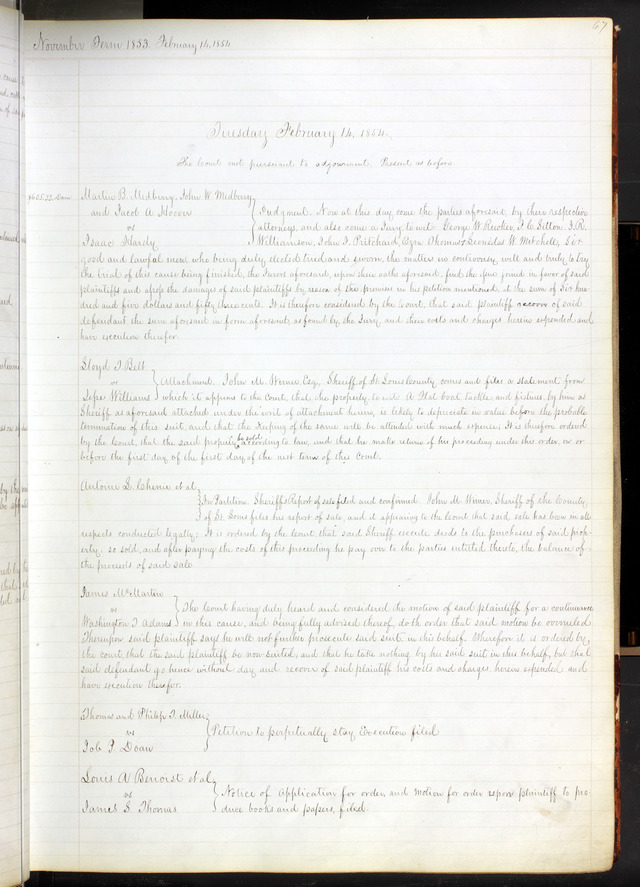 67
November Term 1853. February 14, 1854
Tuesday February 14, 1854.
The Court met pursuant to adjournment. Present as before.
Martin B. Medbury, John W. Medbury
and Jacob A Hoover
vs
Isaac Hardy
Judgment. Now at this day, come the parties aforesaid, by their respective
attorneys, and also come a Jury to wit: George W. Reicker, J. C. Sitton, J. R.
Williamson, John F. Pritchard, Ezra Thomas & Leonidas W. Mitchell, Six
good and lawful men, who being duly elected tried and sworn, the matters in controversy, well and truly to try,
the trial of this cause being finished, the Jurors aforesaid, upon their oaths aforesaid, find the issue joined in favor of said
plaintiffs and assess the damages of said plaintiffs by reason of the premises in his petition mentioned, at the sum of Six hun-
dred and five dollars and fifty three cents. It is therefore considered by the Court, that said plaintiff recover of said
defendant the sum aforesaid in form aforesaid, as found by the Jury, and their costs and charges herein expended and
have execution therefor.
Lloyd T. Belt
vs
Jesse Williams
Attachment. John M. Wimer Esq., Sheriff of St Louis County comes and files a statement from
which it appears to the Court, that the property to wit: A Flat boat, tackle, and fixtures, by him as
Sheriff as aforesaid attached under the writ of attachment herein, is likely to depreciate in value before the probable
termination of this suit, and that the keeping of the same will be attended with much expense; It is therefore ordered
by the Court, that the said property be sold according to law, and that he make return of his proceeding under this order, on or
before the first day of the first day of the next term of this Court.
Antoine L. Chenie et al,
In Partition. Sheriffs Report of sale filed and confirmed. John M. Wimer, Sheriff of the County
of St. Louis files his report of sale, and it appearing to the Court that said sale has been in all
respects conducted legally; It is ordered by the Court that said Sheriff execute deeds to the purchasers of said prop-
erty, so sold, and after paying the costs of this proceeding he pay over to the parties entitled thereto, the balance of
the proceeds of said sale.
James McMartin
vs
Washington T Adams
The Court having duly heard and considered the motion of said plaintiff for a continuance
in this cause, and being fully advised thereof, doth order that said motion be overruled.
Thereupon said plaintiff says he will not further prosecute said suit in this behalf. Wherefore it is ordered by
the court, that the said plaintiff be non suited, and that he take nothing by his said suit in this behalf, but that
said defendant go hence without day and recover of said plaintiff his costs and charges herein expended and
have execution therefor.
Thomas and Philip T. Miller
vs
Job P. Doan
Petition to perpetually stay Execution filed
Louis A Benoist et al,
vs
James S. Thomas
Notice of Application for order, and motion for order upon plaintiff to pro-
duce books and papers, filed.